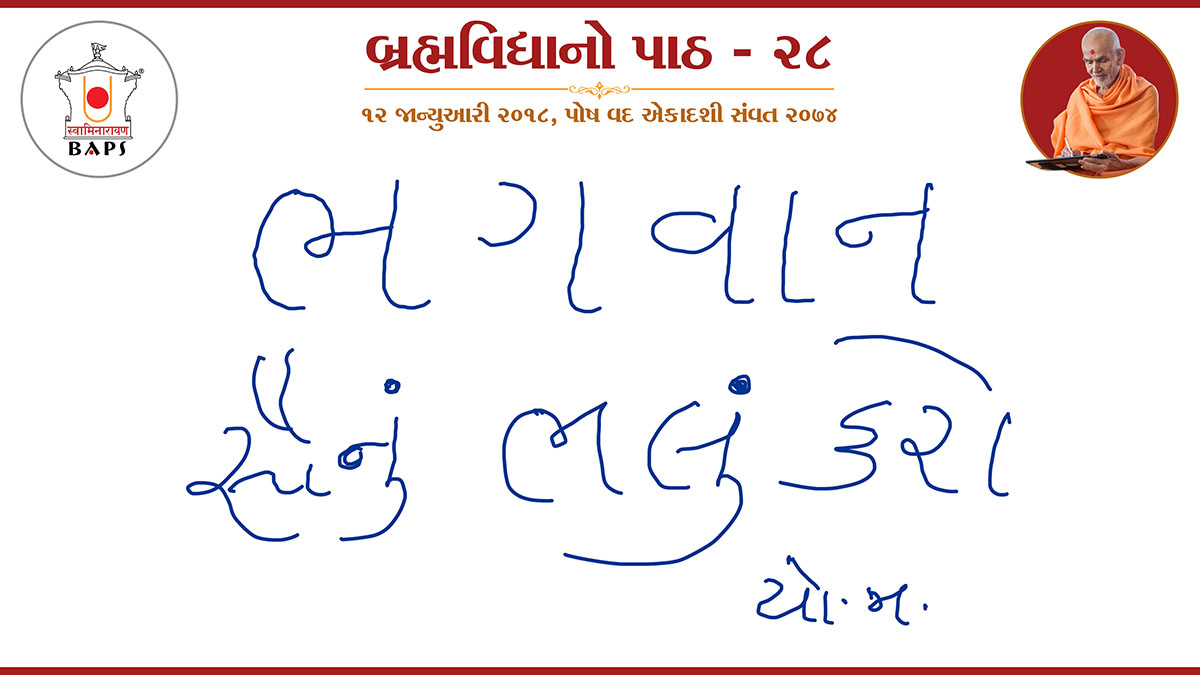 બ્રહ્મવિદ્યાનો પાઠ - ૨૮
૧૨ જાન્યુઆરી ૨૦૧૮, પોષ વદ એકાદશી સંવત ૨૦૭૪
स्वामिनारायण
BAPS
ભગવાન
સૌનું ભલું કરો
યો. મ.